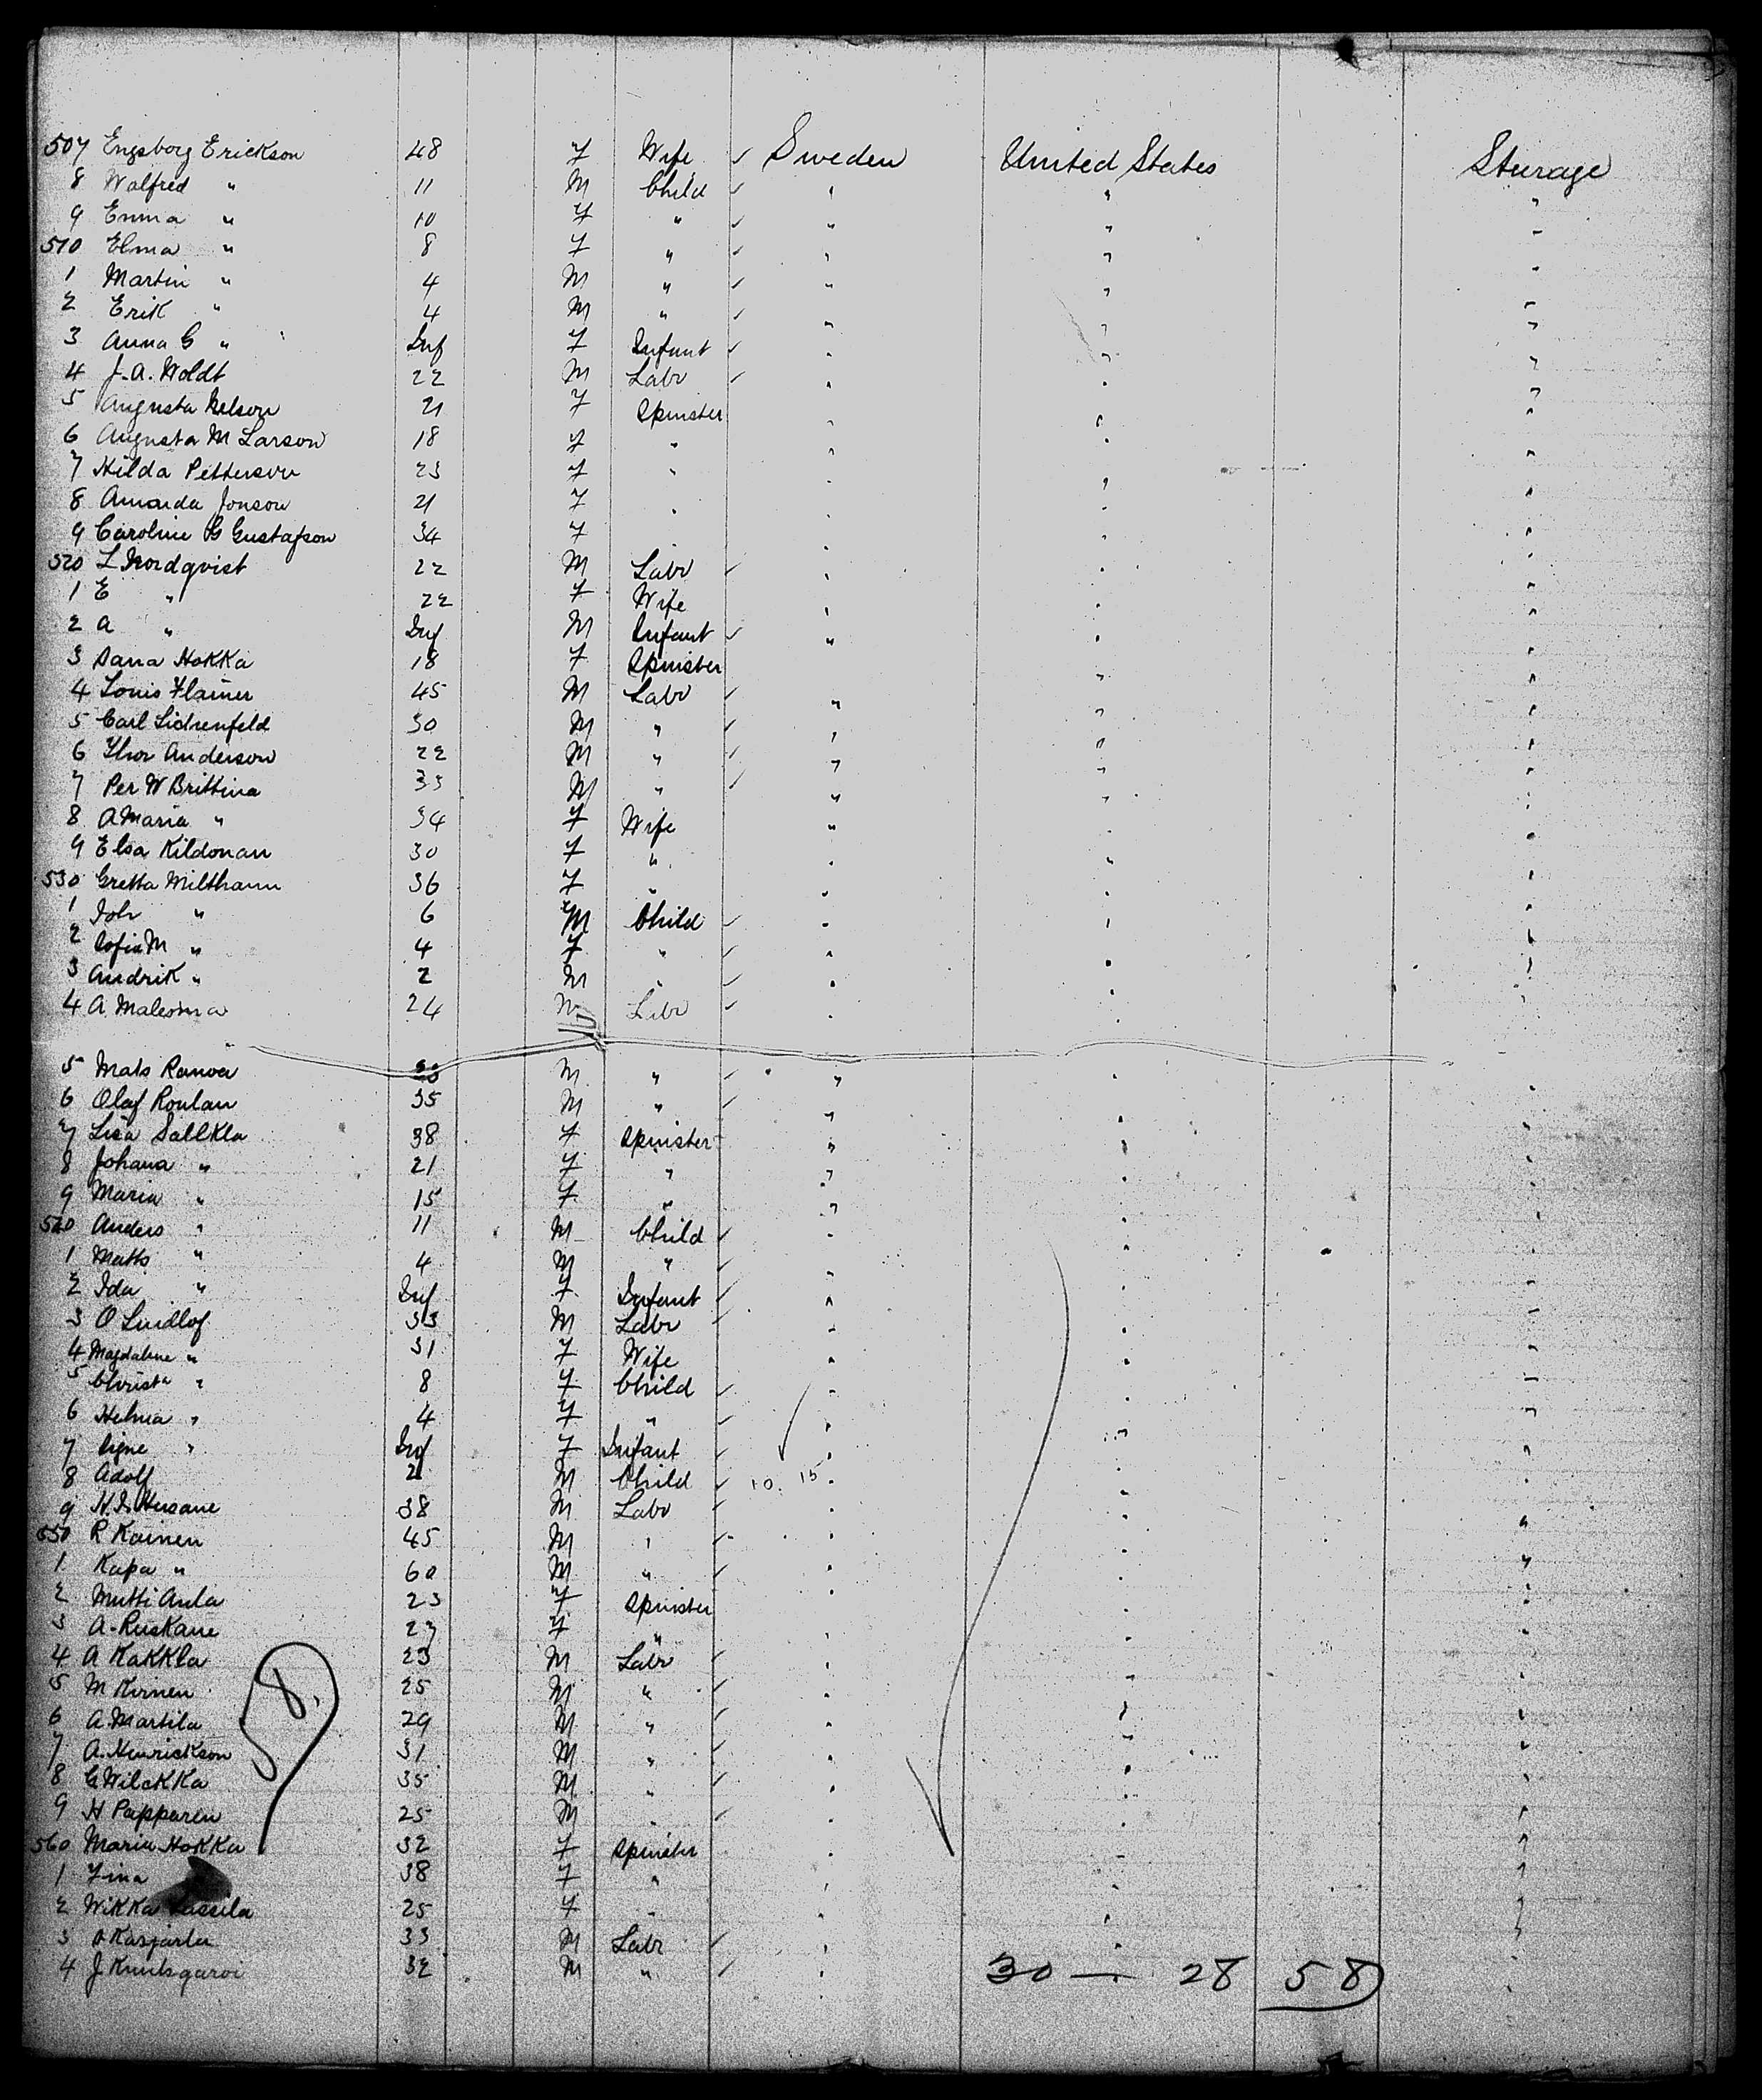 507 Engsborg Erickson 48 F Wife ✓ Sweden United States Sturage
8 Walfred " 11 M Child ✓ " " "
9 Emma " 10 F " ✓ " " "
510 Elma " 8 F " ✓ " " "
1 Martin " 4 M " ✓ " " "
2 Erik " 4 M " ✓ " " "
3 Anna G " Inf F Infant ✓ " " "
4 J. A. Woldt 22 M Labr ✓ " " "
5 Augusta Nelson 21 F Spinster " " "
6 Augusta M Larson 18 F " " " "
7 Hilda Petterson 23 F " " " "
8 Amanda Jonson 21 F " " " "
9 Caroline G Gustafson 34 F " " "
520 L Nordqvist 22 M Labr ✓ " " "
1 E " 22 F Wife " " "
2 A " Inf M Infant ✓ " " "
3 Sana Hokka 18 F Spinster " "
4 Louis Flainer 45 M Labr ✓ " " "
5 Carl Lichenfeld 30 M " ✓ " " "
6 Thor Anderson 22 M " ✓ " " "
7 Per W Brittina 33 M " ✓ " " "
8 A Maria " 34 F Wife " "
9 Elsa Kildonan 30 F " " " "
530 Gretta Milthann 36 F " " " "
1 Joh " 6 M Child ✓ " " "
2 Sofia M " 4 F " ✓ " " "
3 Andrik " 2 M " ✓ " " "
4 A. Malesma 24 M Labr ✓ " " "
5 Mats Ranva 33 M " ✓ " " "
6 Olaf Roulan 35 M " ✓ " " "
7 Lisa Sallkla 38 F Spinster " " "
8 Johana " 21 F " " " "
9 Maria " 15 F " " " "
540 Anders " 11 M Child ✓ " " "
1 Matts " 4 M " ✓ " " "
2 Ida " Inf F Infant ✓ " " "
3 O Lindlof 33 M Labr ✓ " " "
4 Magdalene " 31 F Wife " " "
5 Christa " 8 F Child ✓ " " "
6 Helma " 4 F " ✓ " " "
7 Signe " Inf F Infant ✓ " " "
8 Adolf 21 M Child ✓ 10. 15 " " "
9 H. I. Husane 38 M Labr ✓ " " "
550 R Kainen 45 M " ✓ " " "
1 Kapa " 60 M " ✓ " " "
2 Mutti Aula 23 F Spinster " " "
3 A. Ruskane 27 F " " "
4 A Kakkla 23 M Labr ✓ " " "
5 M Kirnen 25 M " ✓ " " "
6 A. Martila 29 M " ✓ " " "
7 A. Henrickson 31 M " ✓ " " "
8 G Wilckka 35 M " ✓ " " "
9 H Papparen 25 M " ✓ " " "
560 Maria Hokka 32 F Spinster " " "
1 Fina 38 F " " " "
2 Wikka Lassila 25 F " " " "
3 Kasjarla 33 M Labr ✓ " " "
4 J 32 M " ✓ "
8.
30 — 28 58